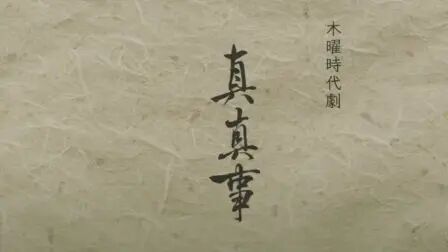 木曜時代劇
真真事